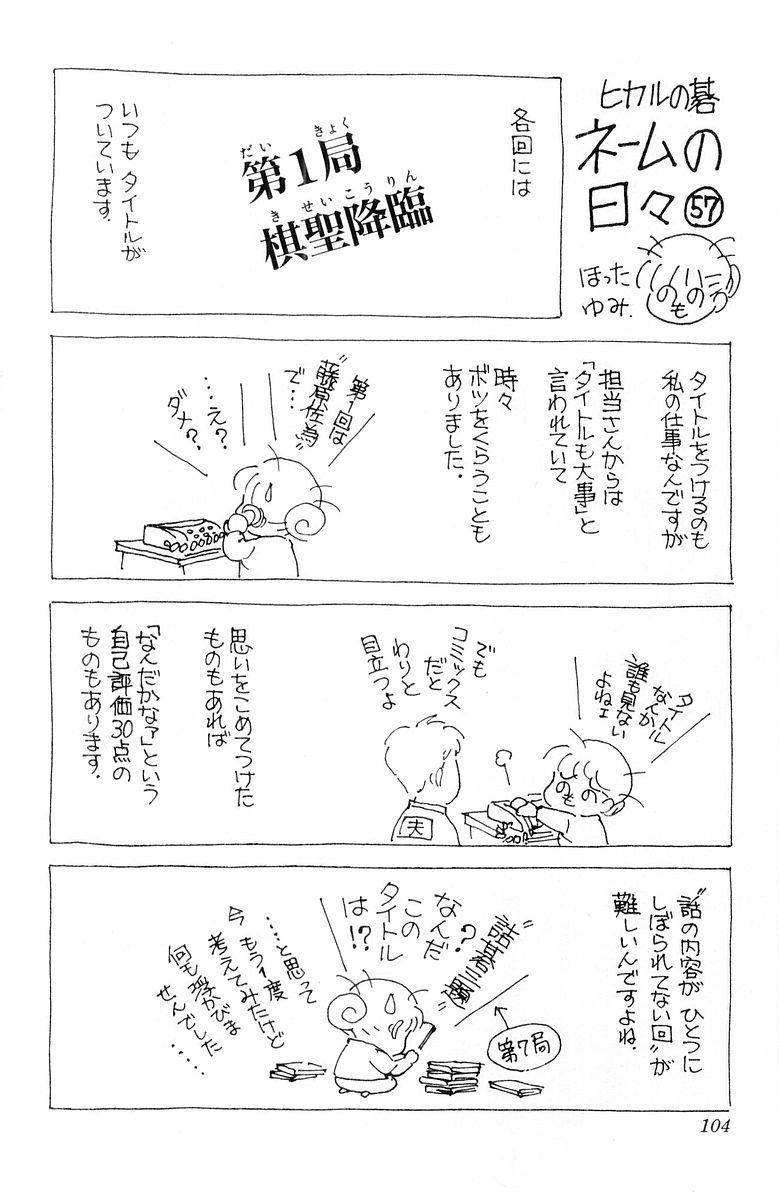 ヒカルの碁
ネームの
日々57
ほった
ゆみ.
各回には
だい きょく
第1局
きせいこうりん
棋聖降臨
いつもタイトルが
ついています.
タイトルをつけるのも
私の仕事なんですが
担当さんからは
「タイトルも大事」と
言われていて
時々
ボツをくらうことも
ありました.
第1回は
"藤原佐為"
で…
…え?
ダメ?
タイトル
なんか
誰も見ない
よねェ
でも
コミックス
だと
わりと
目立つよ
夫
思いをこめてつけた
ものもあれば
「なんだかなァ」という
自己評価30点の
ものもあります.
"話の内容がひとつに
しぼられてない回"が
難しいんですよね.
第7局
?
なんだ
この
タイトル
は!?
……と思って
今もう1度
考えてみたけど
何も浮かびま
せんでした
.....
104